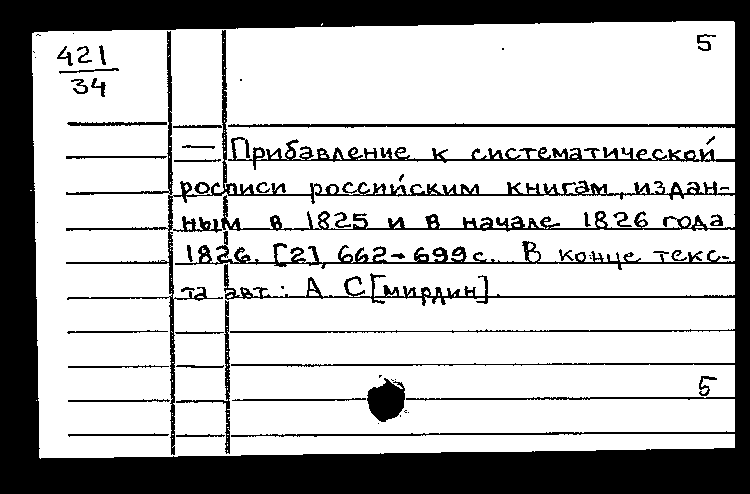 5
421
34
— Прибавление к систематической
росписи российским книгам, издан-
ным в 1825 и в начале 1826 года
1826. [2], 662-699 с. В конце текс-
та авт.: А. С[мирдин].
5